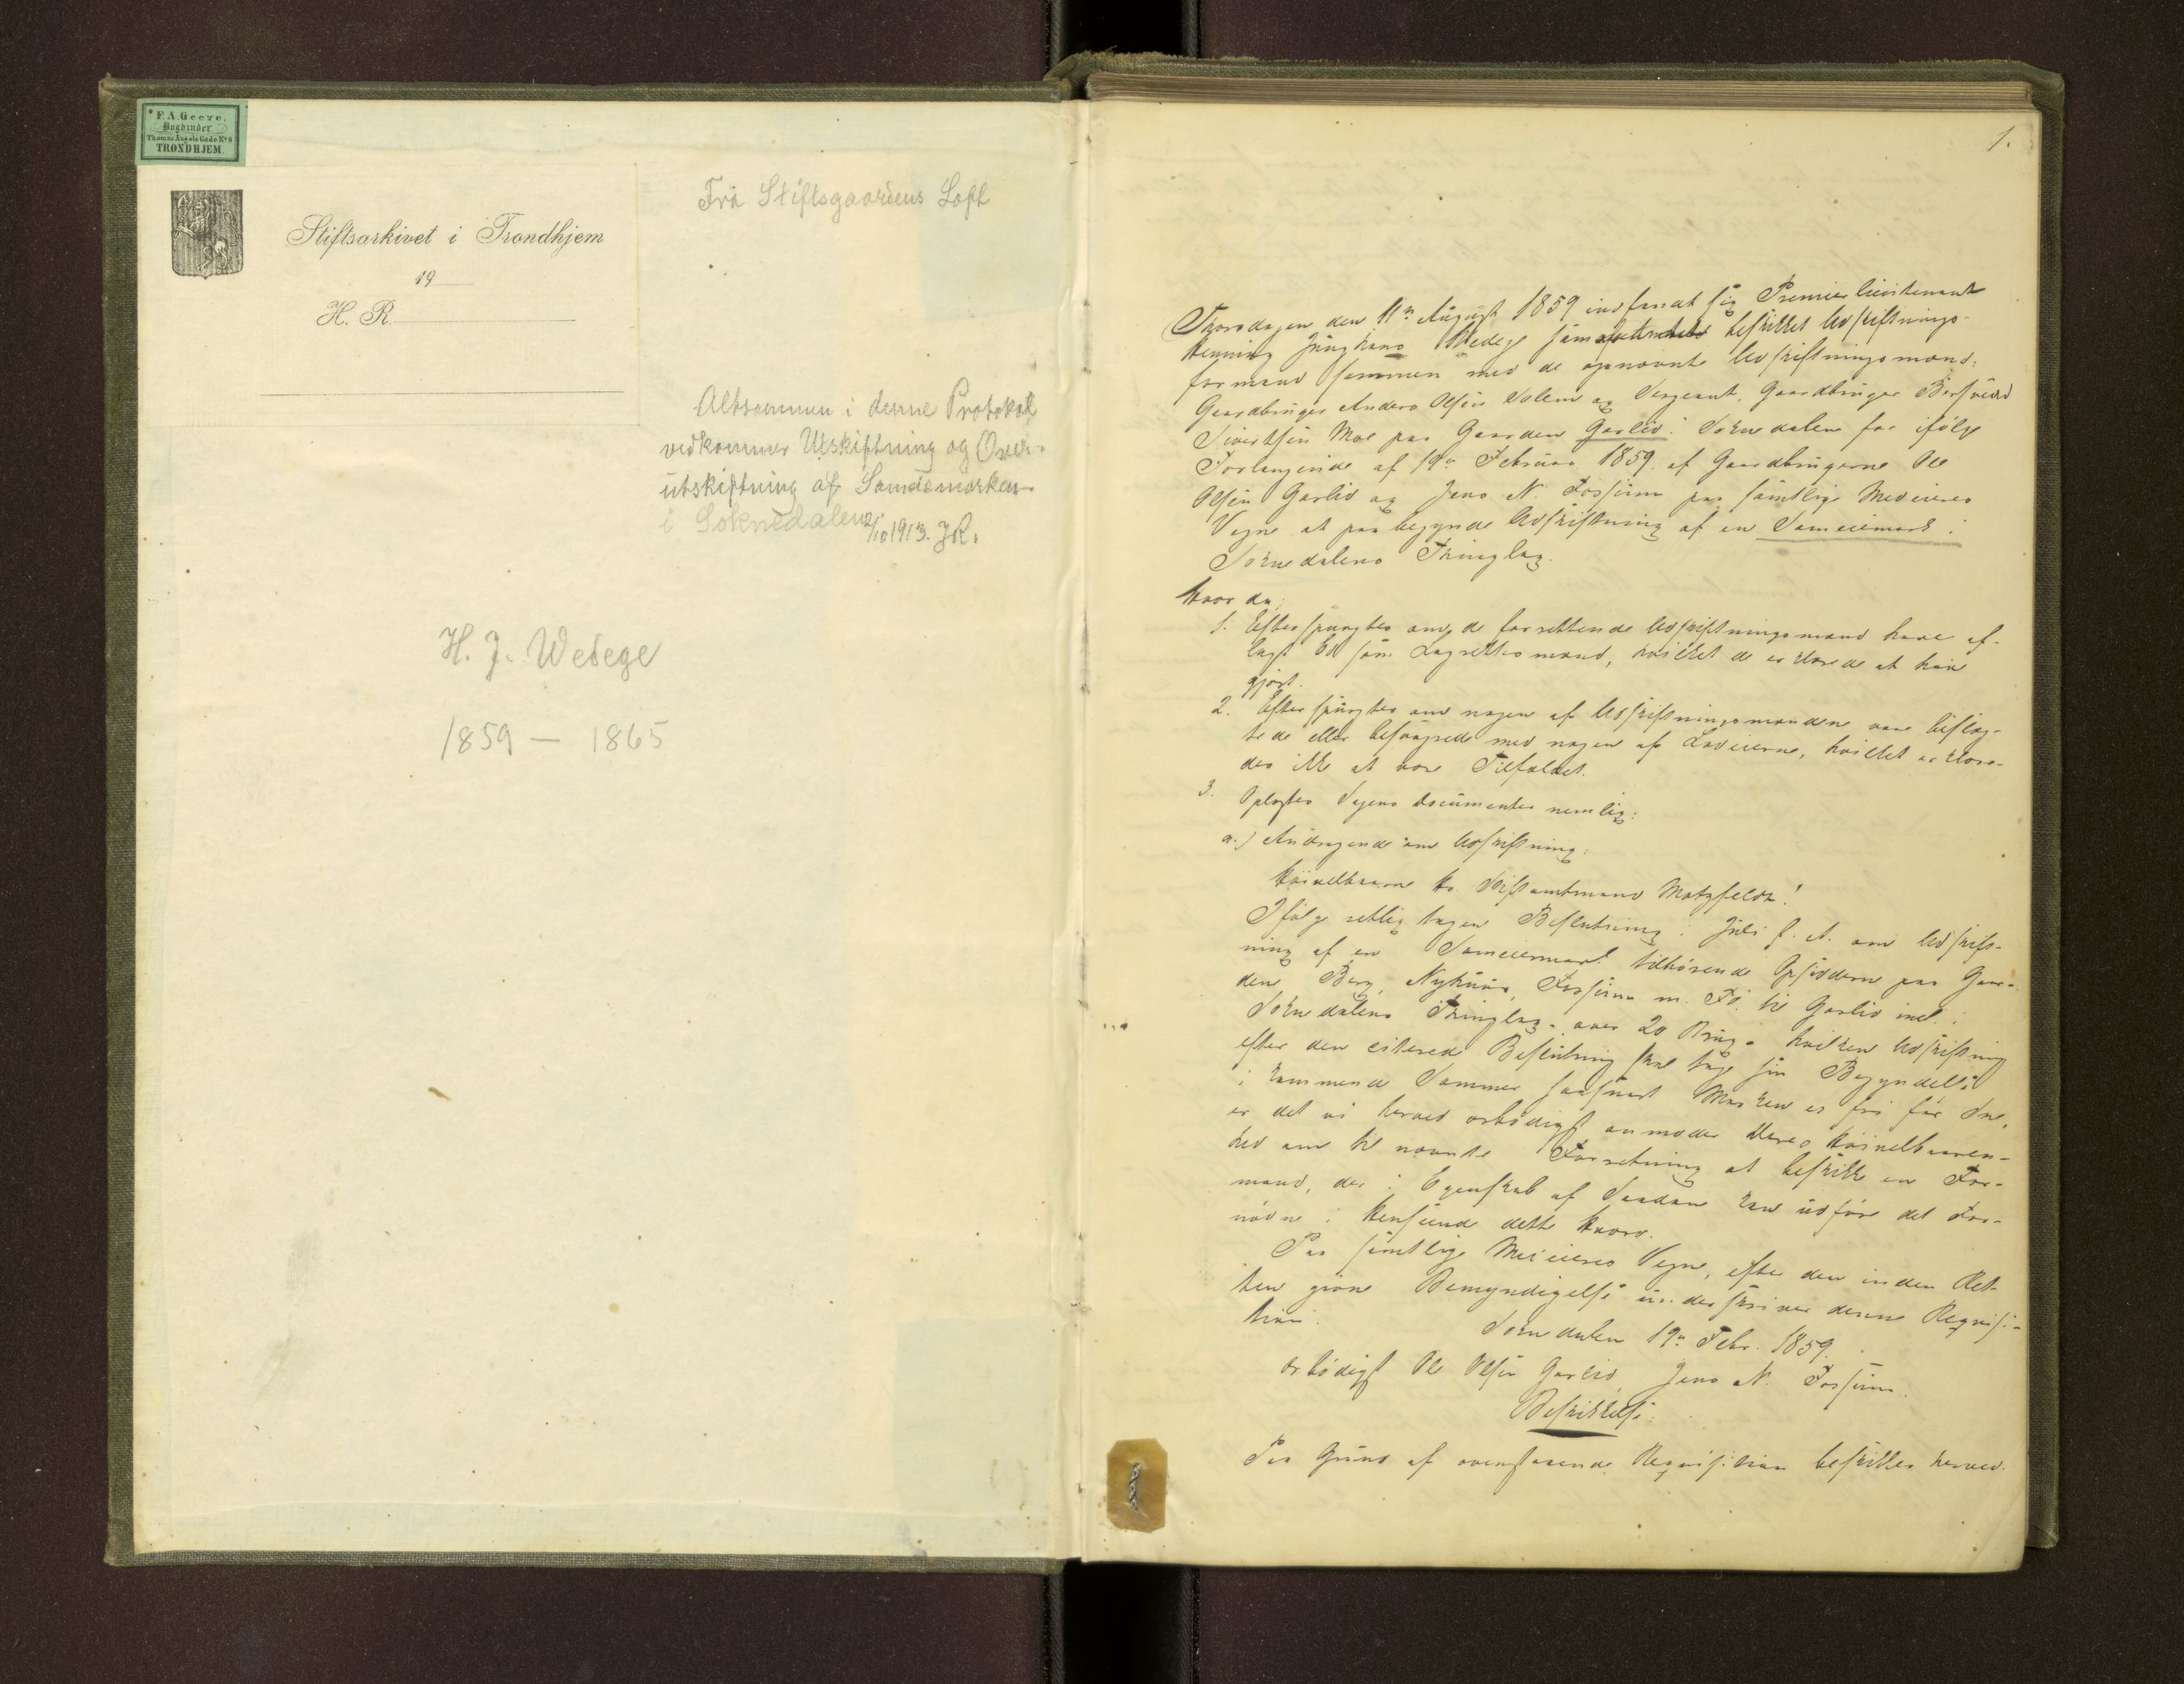 F. A. Geeve.
Bogbinder
Thomas Angels Gade No 9
TRONDHJEM.
Stiftsarkivet i Trondhjem
19
H. R.
Frå Stiftsgaardens Loft
Altsammen i denne Protokol
vedkommer Utskiftning og Over-
utskiftning af Sameiemarken
i Soknedalen 2/10 1913. JR.
H. J. Wedege
1859 — 1865
1.
Thorsdagen den 11te August 1859 indfandt sig Premierlieutenant
Henning Junghans Wedege som beskikket Udskiftnings-
formand sammen med de opnævnte Udskiftningsmænd:
Gaardbruger Anders Olsen Solem og Sergeant, Gaardbruger
Sivertsen Moe paa Gaarden Garlid i Soknedalen for ifølge
Forlangende af 19de Februar 1859 af Gaardbrugerne Ole
Olsen Garlid og Jens N. Fossum paa samtlige Medeieres
Vegne at paabegynde Udskiftning af en Sameiemark i
Soknedalens Thinglag.
Hvor da:
1. Efterspurgtes om de forrettende Udskiftningsmænd have af-
lagt Ed som Lagrettesmænd, hvilket de erklærede at have
gjort.
2. Efterspurgtes om nogen af Udskiftningsmændene vare beslæg-
tede eller besvogrede med nogen af Lodeierne, hvilket erklære-
des ikke at være Tilfældet.
3. Oplagtes Sagens Documenter nemlig:
a.) Andragende om Udskiftning:
Høivelbaarne Hr. Stiftamtmand Motzfeldt!
Ifølge retlig tagen Beslutning i Juli f. A. om Udskift-
ning af en Sameiemark tilhørende Opsidderne paa Gaar-
dene Berg, Nyhuus, Fossum m. Fl. til Garlid incl. i
Soknedalens Thinglag - over 20 Brug - hvilken Udskiftning
efter den citerede Beslutning skal tage sin Begyndelse
i kommende Sommer saasnart Marken er fri for Sne,
er det vi herved ærbødigst anmoder Deres Høivelbaaren-
hed om til nævnte Forretning at beskikke en For-
mand, der i Egenskab af Saadan kan udføre det For-
nødne i Henseende dette Hverv.
Paa samtlige Medeieres Vegne, efter den inden Ret-
ten givne Bemyndigelse underskriver denne Requisi-
tion.
Soknedalen 19de Febr. 1859.
Ærbødigst Ole Olsen Garlid, Jens N. Fossum.
Beskikkelse:
Paa Grund af ovenstaaende Requisition beskikkes herved